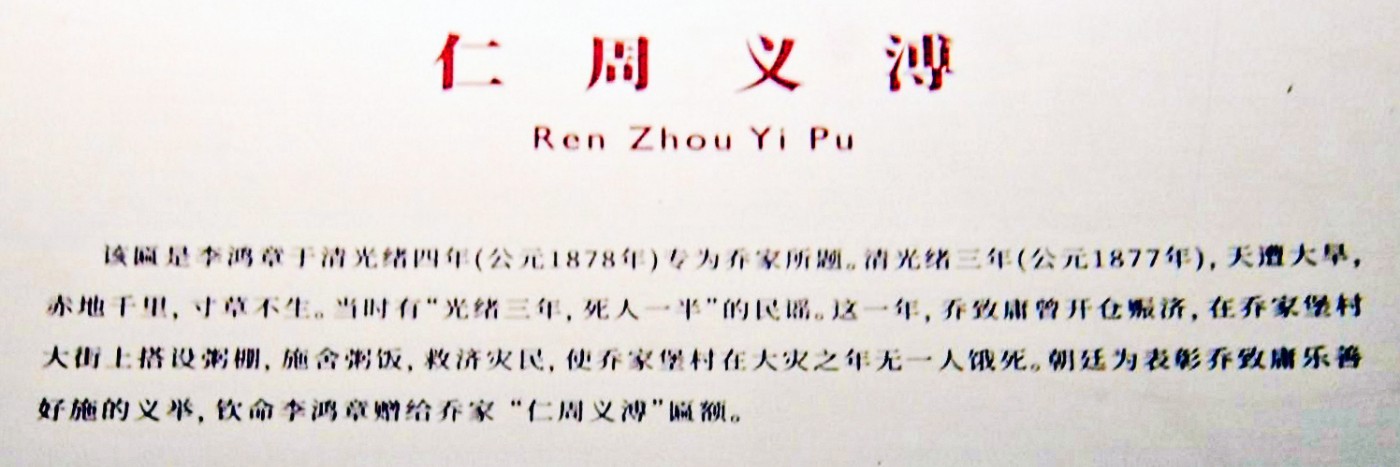 仁周义溥
Ren Zhou Yi Pu
该匾是李鸿章于清光绪四年(公元1878年)专为乔家所题。清光绪三年(公元1877年),天遭大旱,
赤地千里,寸草不生。当时有“光绪三年,死人一半”的民谣。这一年,乔致庸曾开仓赈济,在乔家堡村
大街上搭设粥棚,施舍粥饭,救济灾民,使乔家堡村在大灾之年无一人饿死。朝廷为表彰乔致庸乐善
好施的义举,钦命李鸿章赠给乔家“仁周义溥”匾额。